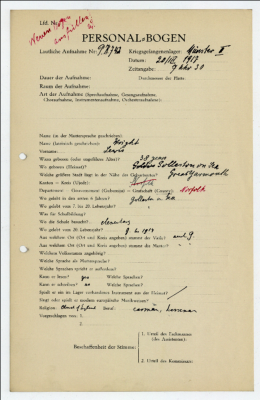 Lfd. Nr.
Neuen Bogen
ausfüllen
PERSONAL=BOGEN
Lautliche Aufnahme Nr.: 
Kriegsgefangenenlager: Münster II
Datum: 
Zeitangabe: 9 Uhr 30
Dauer der Aufnahme:
Durchmesser der Platte:
Raum der Aufnahme:
Art der Aufnahme (Sprechaufnahme, Gesangsaufnahme,
Choraufnahme, Instrumentenaufnahme, Orchesteraufnahme):
Name (in der Muttersprache geschrieben):
Name (lateinisch geschrieben): Wright
Vorname: Lewis
Wann geboren (oder ungefähres Alter)? 38 years
Wo geboren (Heimat)? Gorleston on Sea
Welche größere Stadt liegt in der Nähe des Geburtsortes? Great Yarmouth
Kanton — Kreis (Ujedz):
Department — Gouvernement (Gubernija) — Grafschaft (County): Norfolk
Wo gelebt in den ersten 6 Jahren? Gorleston on Sea
Wo gelebt vom 7. bis 20. Lebensjahr?
Was für Schulbildung?
Wo die Schule besucht? elementary
Wo gelebt vom 20. Lebensjahr?
Aus welchem Ort (Ort und Kreis angeben) stammt der Vater?
Aus welchem Ort (Ort und Kreis angeben) stammt die Mutter?
Welchem Volksstamm angehörig?
Welche Sprache als Muttersprache?
Welche Sprachen spricht er außerdem?
Kann er lesen? yes Welche Sprachen?
Kann er schreiben? Welche Sprachen?
Spielt er ein im Lager vorhandenes Instrument aus der Heimat?
Singt oder spielt er modern europäische Musikweisen?
Religion: Church of England Beruf: seaman, horseman
Vorgeschlagen von: 1.
2.
Beschaffenheit der Stimme:
1. Urteil des Fachmannes
(des Assistenten):
2. Urteil des Kommissars: